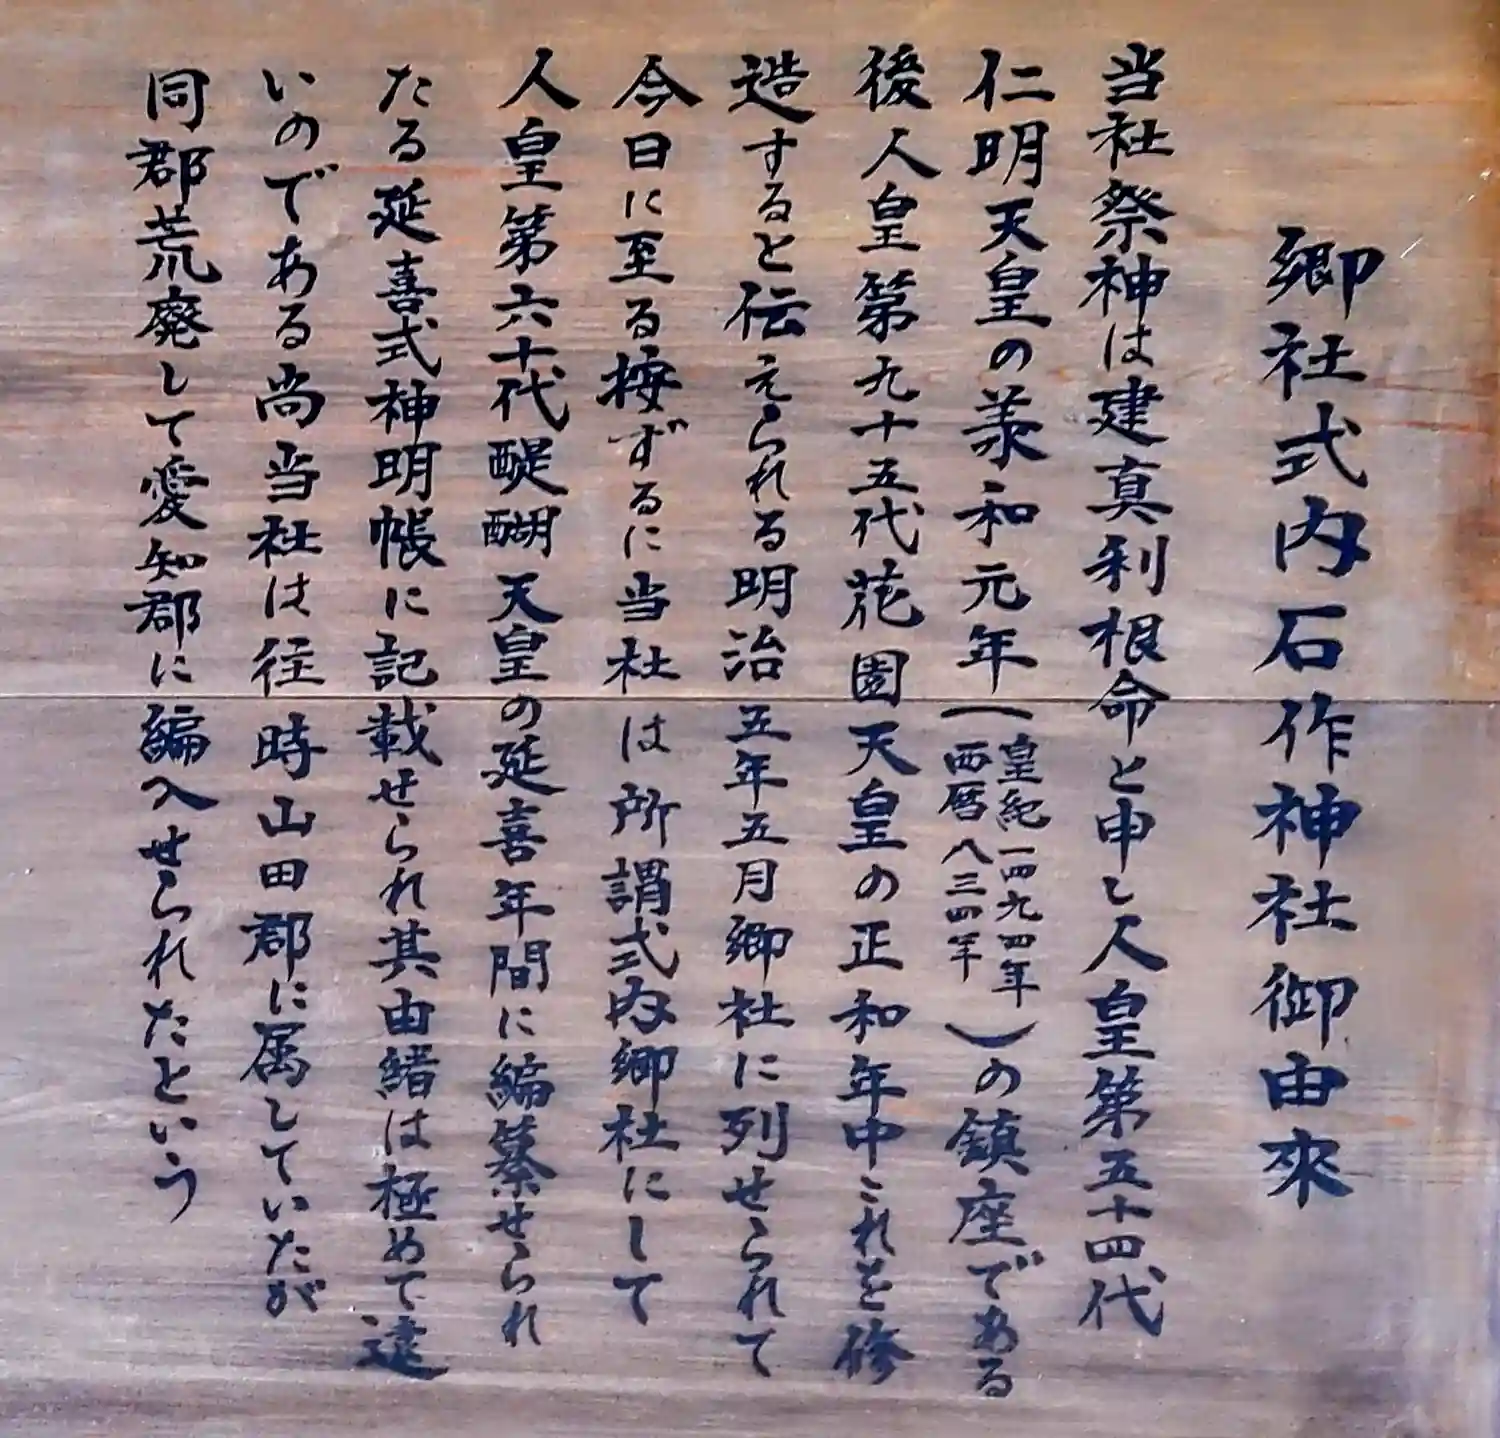 郷社式内石作神社御由來
当社祭神は建真利根命と申し人皇第五十四代
仁明天皇の承和元年(皇紀一四九四年 西暦八三四年)の鎮座である
後人皇第九十五代花園天皇の正和年中これを修
造すると伝えられる明治五年五月郷社に列せられて
今日に至る按ずるに当社は所謂式内郷社にして
人皇第六十代醍醐天皇の延喜年間に編纂せられ
たる延喜式神明帳に記載せられ其由緒は極めて遠
いのである尚当社は往時山田郡に属していたが
同郡荒廃して愛知郡に編入せられたという